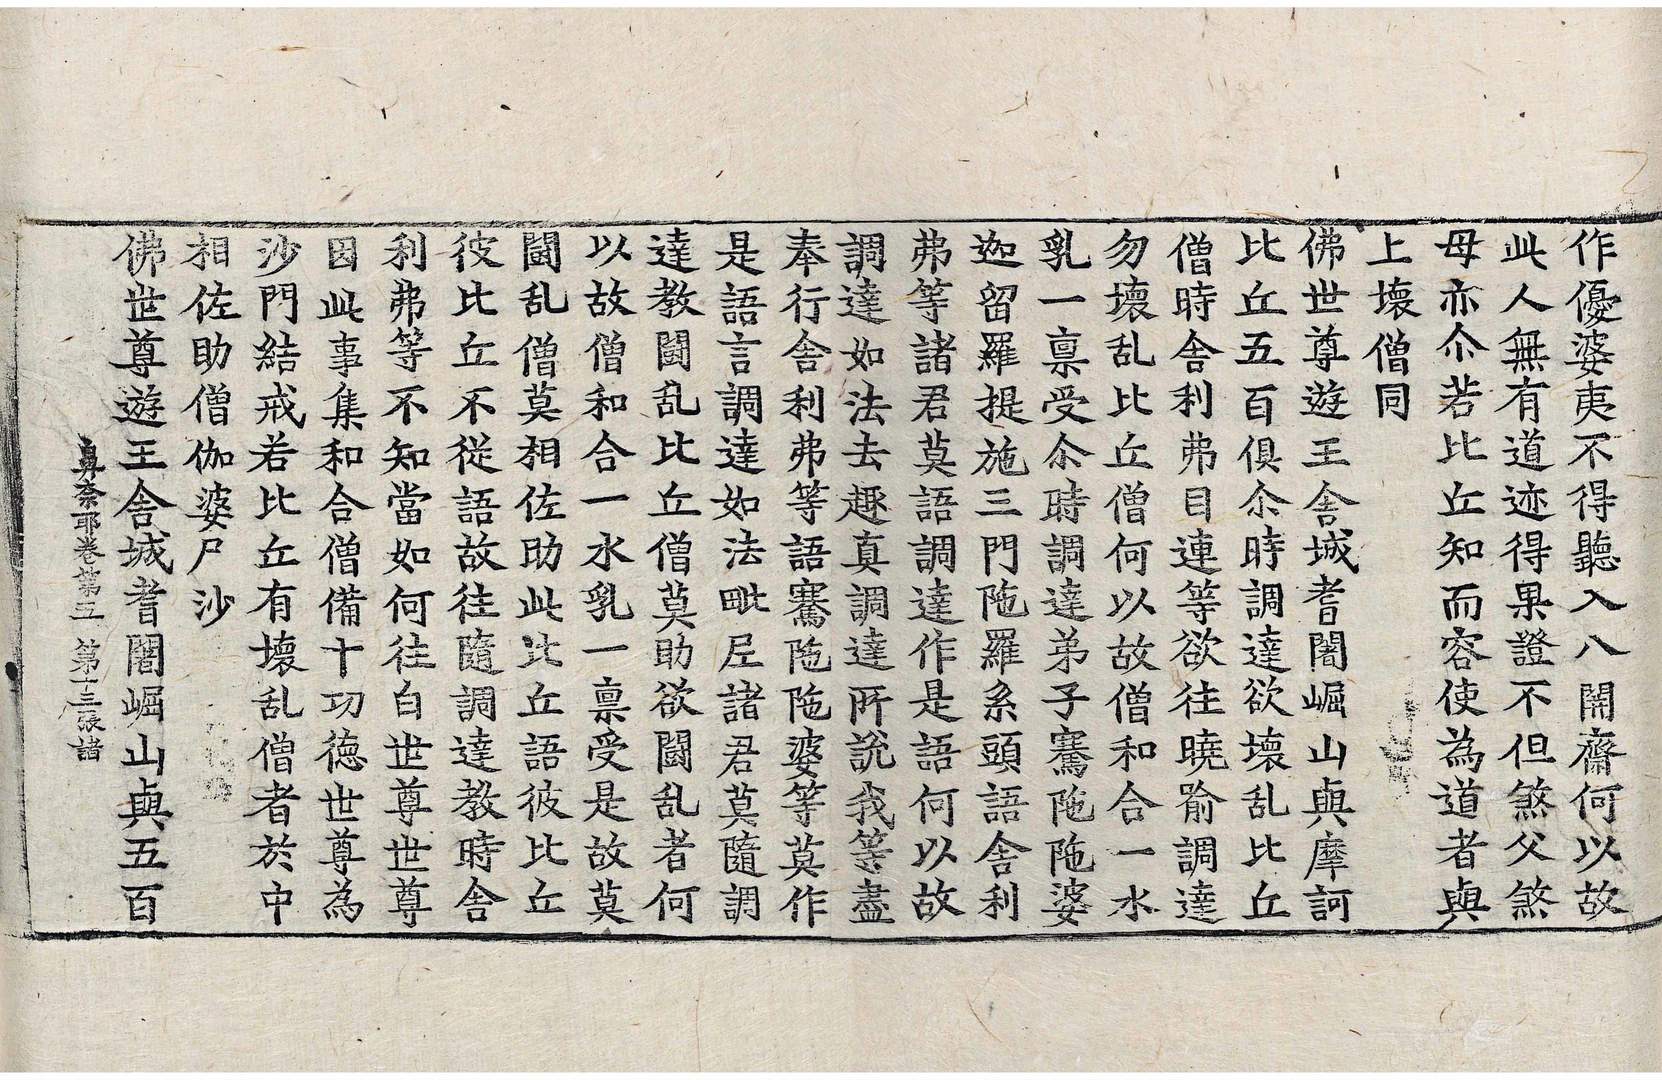 作優婆夷不得聽入八關齋何以故
此人無有道迹得果證不但煞父煞
母亦尒若比丘知而容使為道者與
上壞僧同
佛世尊遊王舍城耆闍崛山與摩訶
比丘五百俱尒時調達欲壞乱比丘
僧時舍利弗目連等欲往曉喻調達
勿壞乱比丘僧何以故僧和合一水
乳一禀受尒時調達弟子騫陁陁婆
迦留羅提施三門陁羅系頭語舍利
弗等諸君莫語調達作是語何以故
調達如法去趣真調達所說我等盡
奉行舍利弗等語騫陁陁婆等莫作
是語言調達如法毗尼諸君莫隨調
達教鬪乱比丘僧莫助欲鬪乱者何
以故僧和合一水乳一禀受是故莫
鬪乱僧莫相佐助此比丘語彼比丘
彼比丘不從語故往隨調達教時舍
利弗等不知當如何往白世尊世尊
因此事集和合僧備十功德世尊為
沙門結戒若比丘有壞乱僧者於中
相佐助僧伽婆尸沙
佛世尊遊王舍城耆闍崛山與五百
鼻奈耶卷第五 第十三張 諸